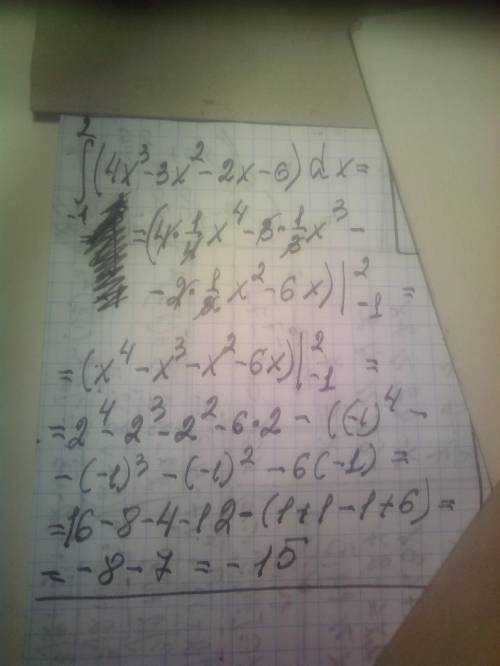 ∫₋₁² (4x³ - 3x² - 2x - 6) dx =
= (4·1/4 x⁴ - 3·1/3 x³ -
- 2·1/2 x² - 6x) |₋₁² =
= (x⁴ - x³ - x² - 6x) |₋₁² =
= 2⁴ - 2³ - 2² - 6·2 - ((-1)⁴ -
- (-1)³ - (-1)² - 6(-1) =
= 16 - 8 - 4 - 12 - (1 + 1 - 1 + 6) =
= - 8 - 7 = - 15